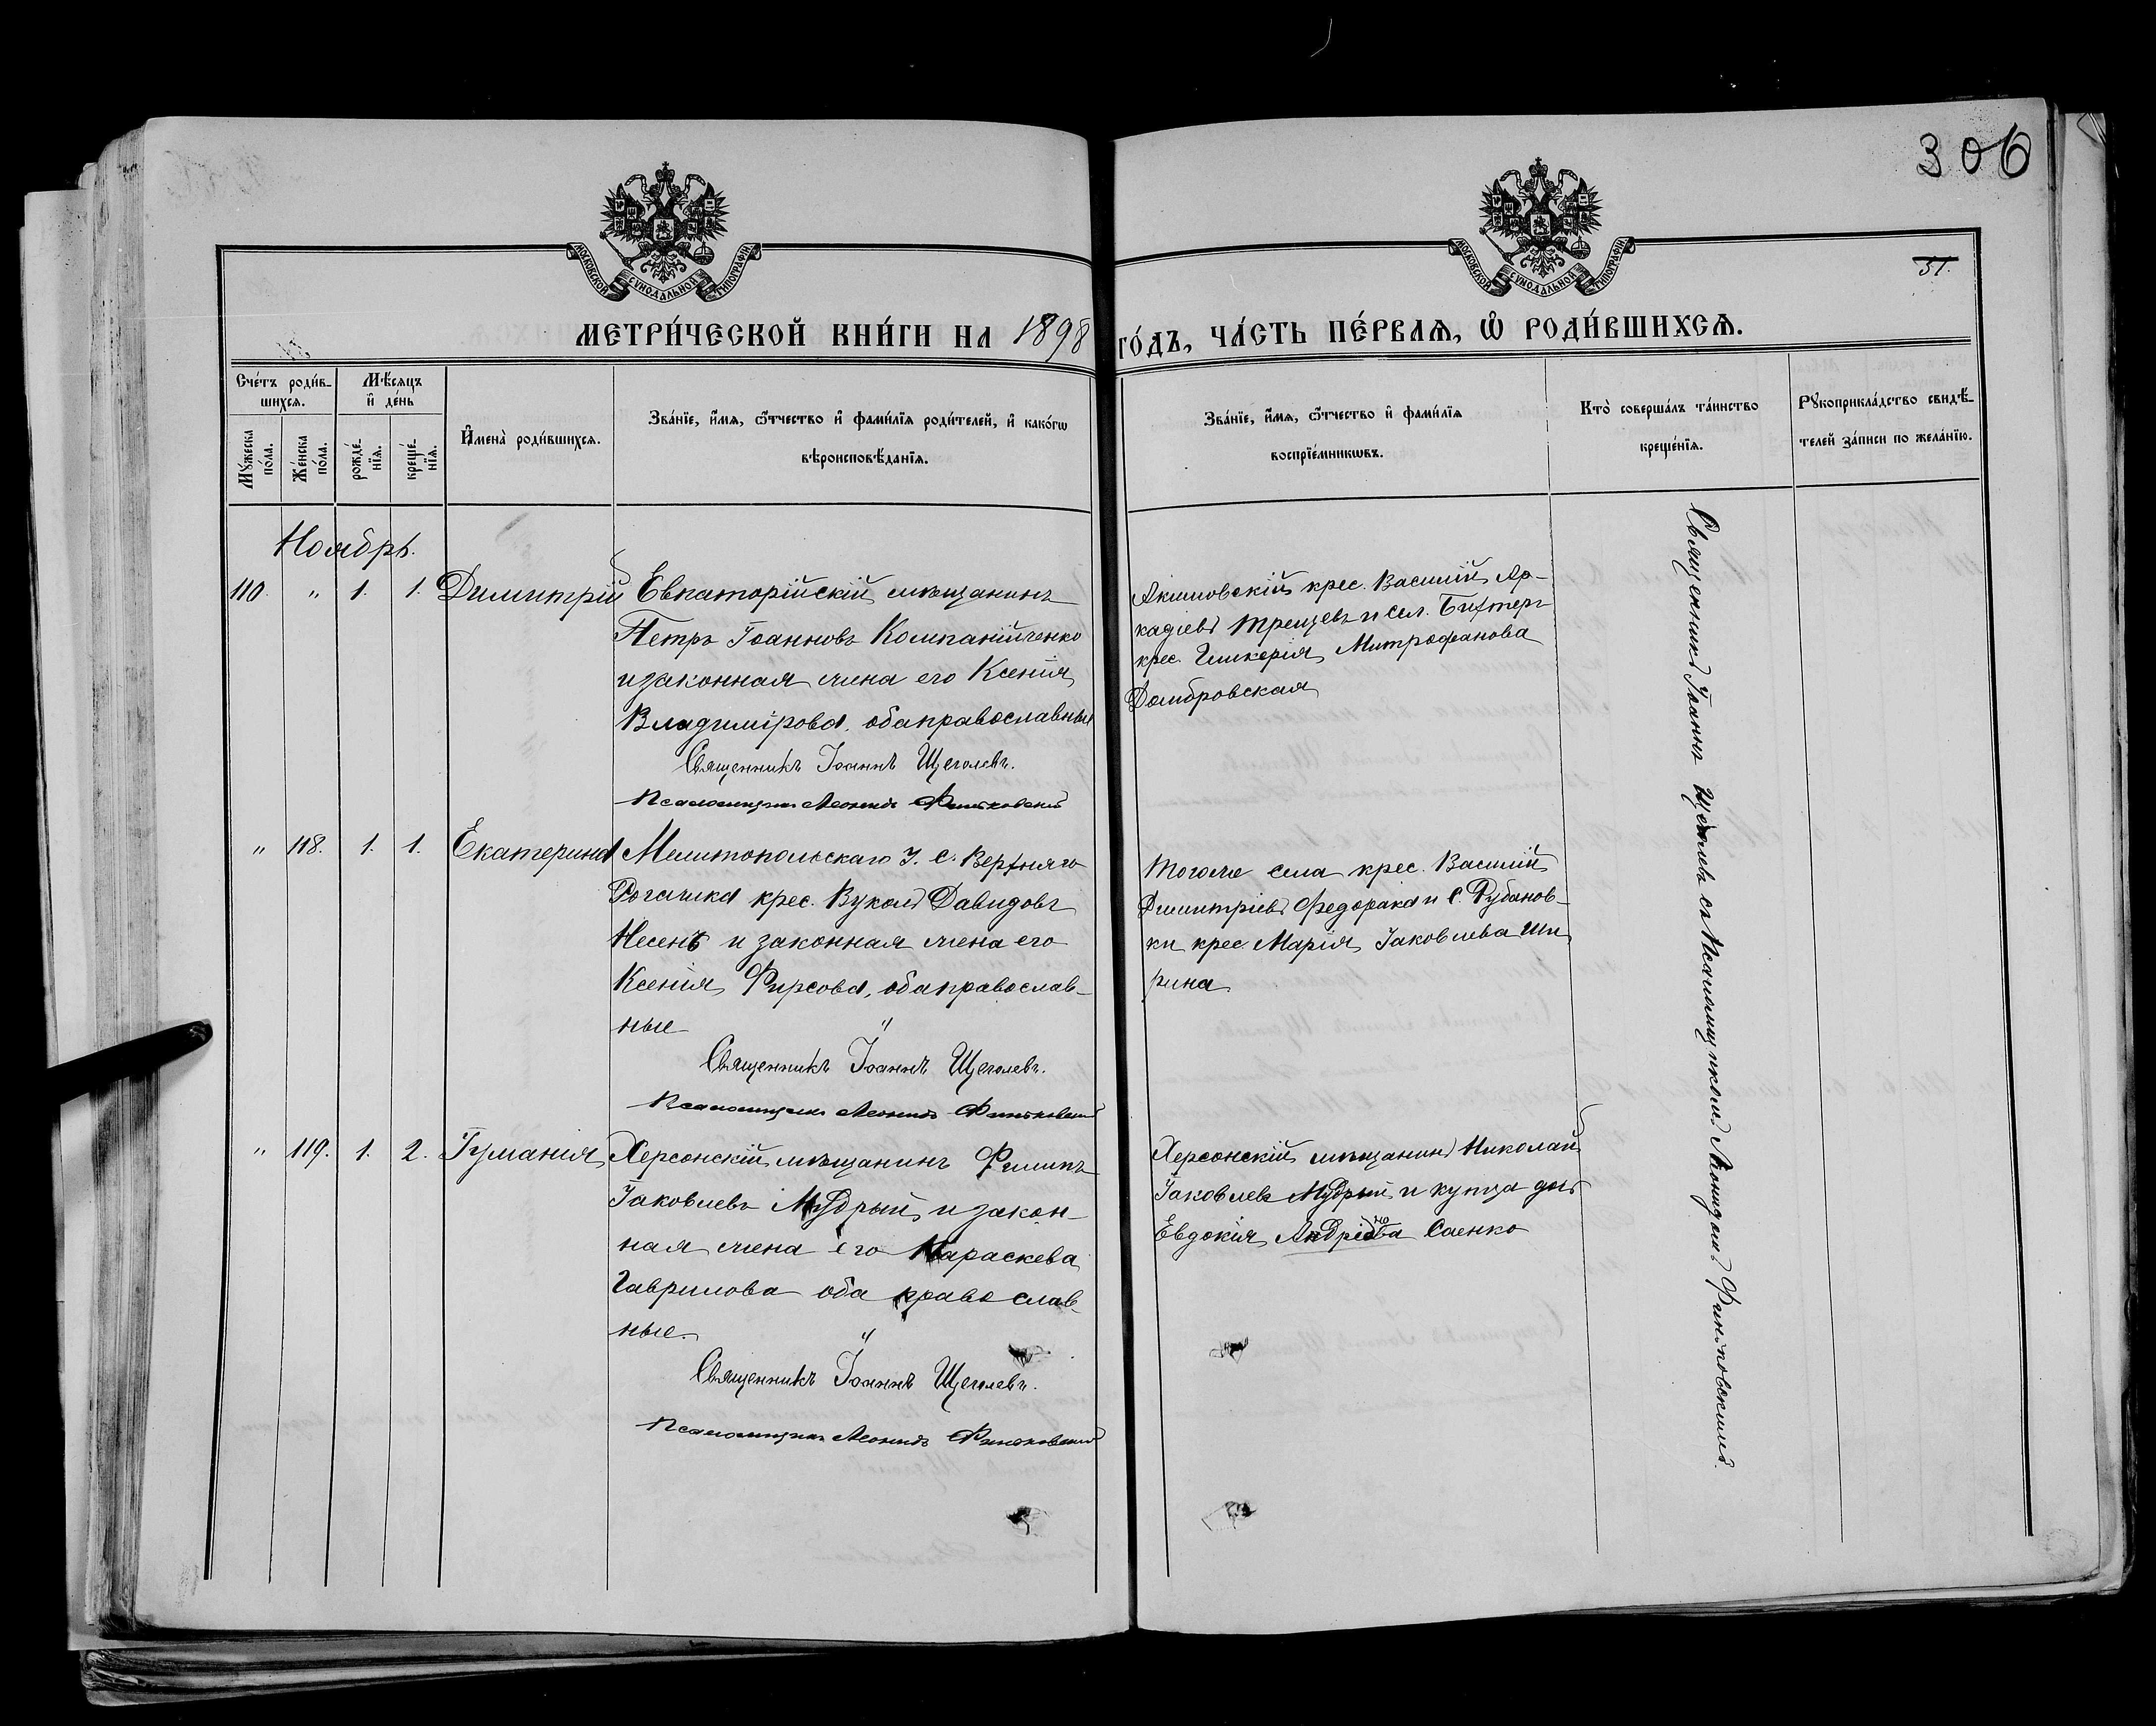 306
51.
МОСКОВСКОЙ СѴНОДАЛЬНОЙ ТИПОГРАФІИ
МОСКОВСКОЙ СѴНОДАЛЬНОЙ ТИПОГРАФІИ
МЕТРИ́ЧЕСКОЙ КНИ́ГИ НА 1898 ГО́ДЪ, ЧА́СТЬ ПЕ́РВАѦ, Ѡ҆ РОДИ́ВШИХСѦ.
Сче́тъ роди́в-
шихсѧ.
Мѣ́сѧцъ
и҆ де́нь
Мꙋ́жеска
по́ла.
Же́нска
по́ла.
рожде́-
нїѧ.
креще́-
нїѧ.
И҆мена̀ роди́вшихсѧ.
Зва́нїе, и҆́мѧ, ѻ҆́тчество и҆ фами́лїѧ роди́телей, и҆ како́гѡ
вѣроисповѣ́данїѧ.
Зва́нїе, и҆́мѧ, ѻ҆́тчество и҆ фами́лїѧ
воспрїе́мникѡвъ.
Кто̀ соверша́лъ та́инство
креще́нїѧ.
Рꙋкоприкла́дство свидѣ́-
телей за́писи по жела́нїю.
Ноябрь.
110. " 1. 1. Димитрій
Евпаторійскій мѣщанинъ
Петръ Іоанновъ Компанійченко
и законная жена его Ксенія
Владимірова, оба православные
Священникъ Іоаннъ Щеголевъ.
Псаломщикъ Леонидъ
Акимовскій крес. Василій Ар-
кадіевъ Трещевъ и сел.
крес. Гликерія Митрофанова
Домбровская
" 118. 1. 1. Екатерина
Мелитопольскаго У. с. Верхняго
Рогачика крес. Вуколъ Давидовъ
Несенъ и законная жена его
Ксенія Фирсова, оба православ-
ные "
Священникъ Іоаннъ Щеголевъ.
Псаломщикъ Леонидъ
Того же села крес. Василій
Димитріевъ Федорака и С. Рубанов-
ки крес. Марія Іаковлева Ши
рина
" 119. 1. 2. Іуманія
Херсонскій мѣщанинъ Филипъ
Іаковлевъ Мудрый и закон-
ная жена его Параскева
Гаврилова оба православ-
ные. "
Священникъ Іоаннъ Щеголевъ.
Псаломщикъ Леонидъ
Херсонскій мѣщанинъ Николай
Іаковлевъ Мудрый и купца дочь
Евдокія Саенко
Священникъ Іоаннъ Щеголевъ съ Псаломщикомъ Леонидомъ